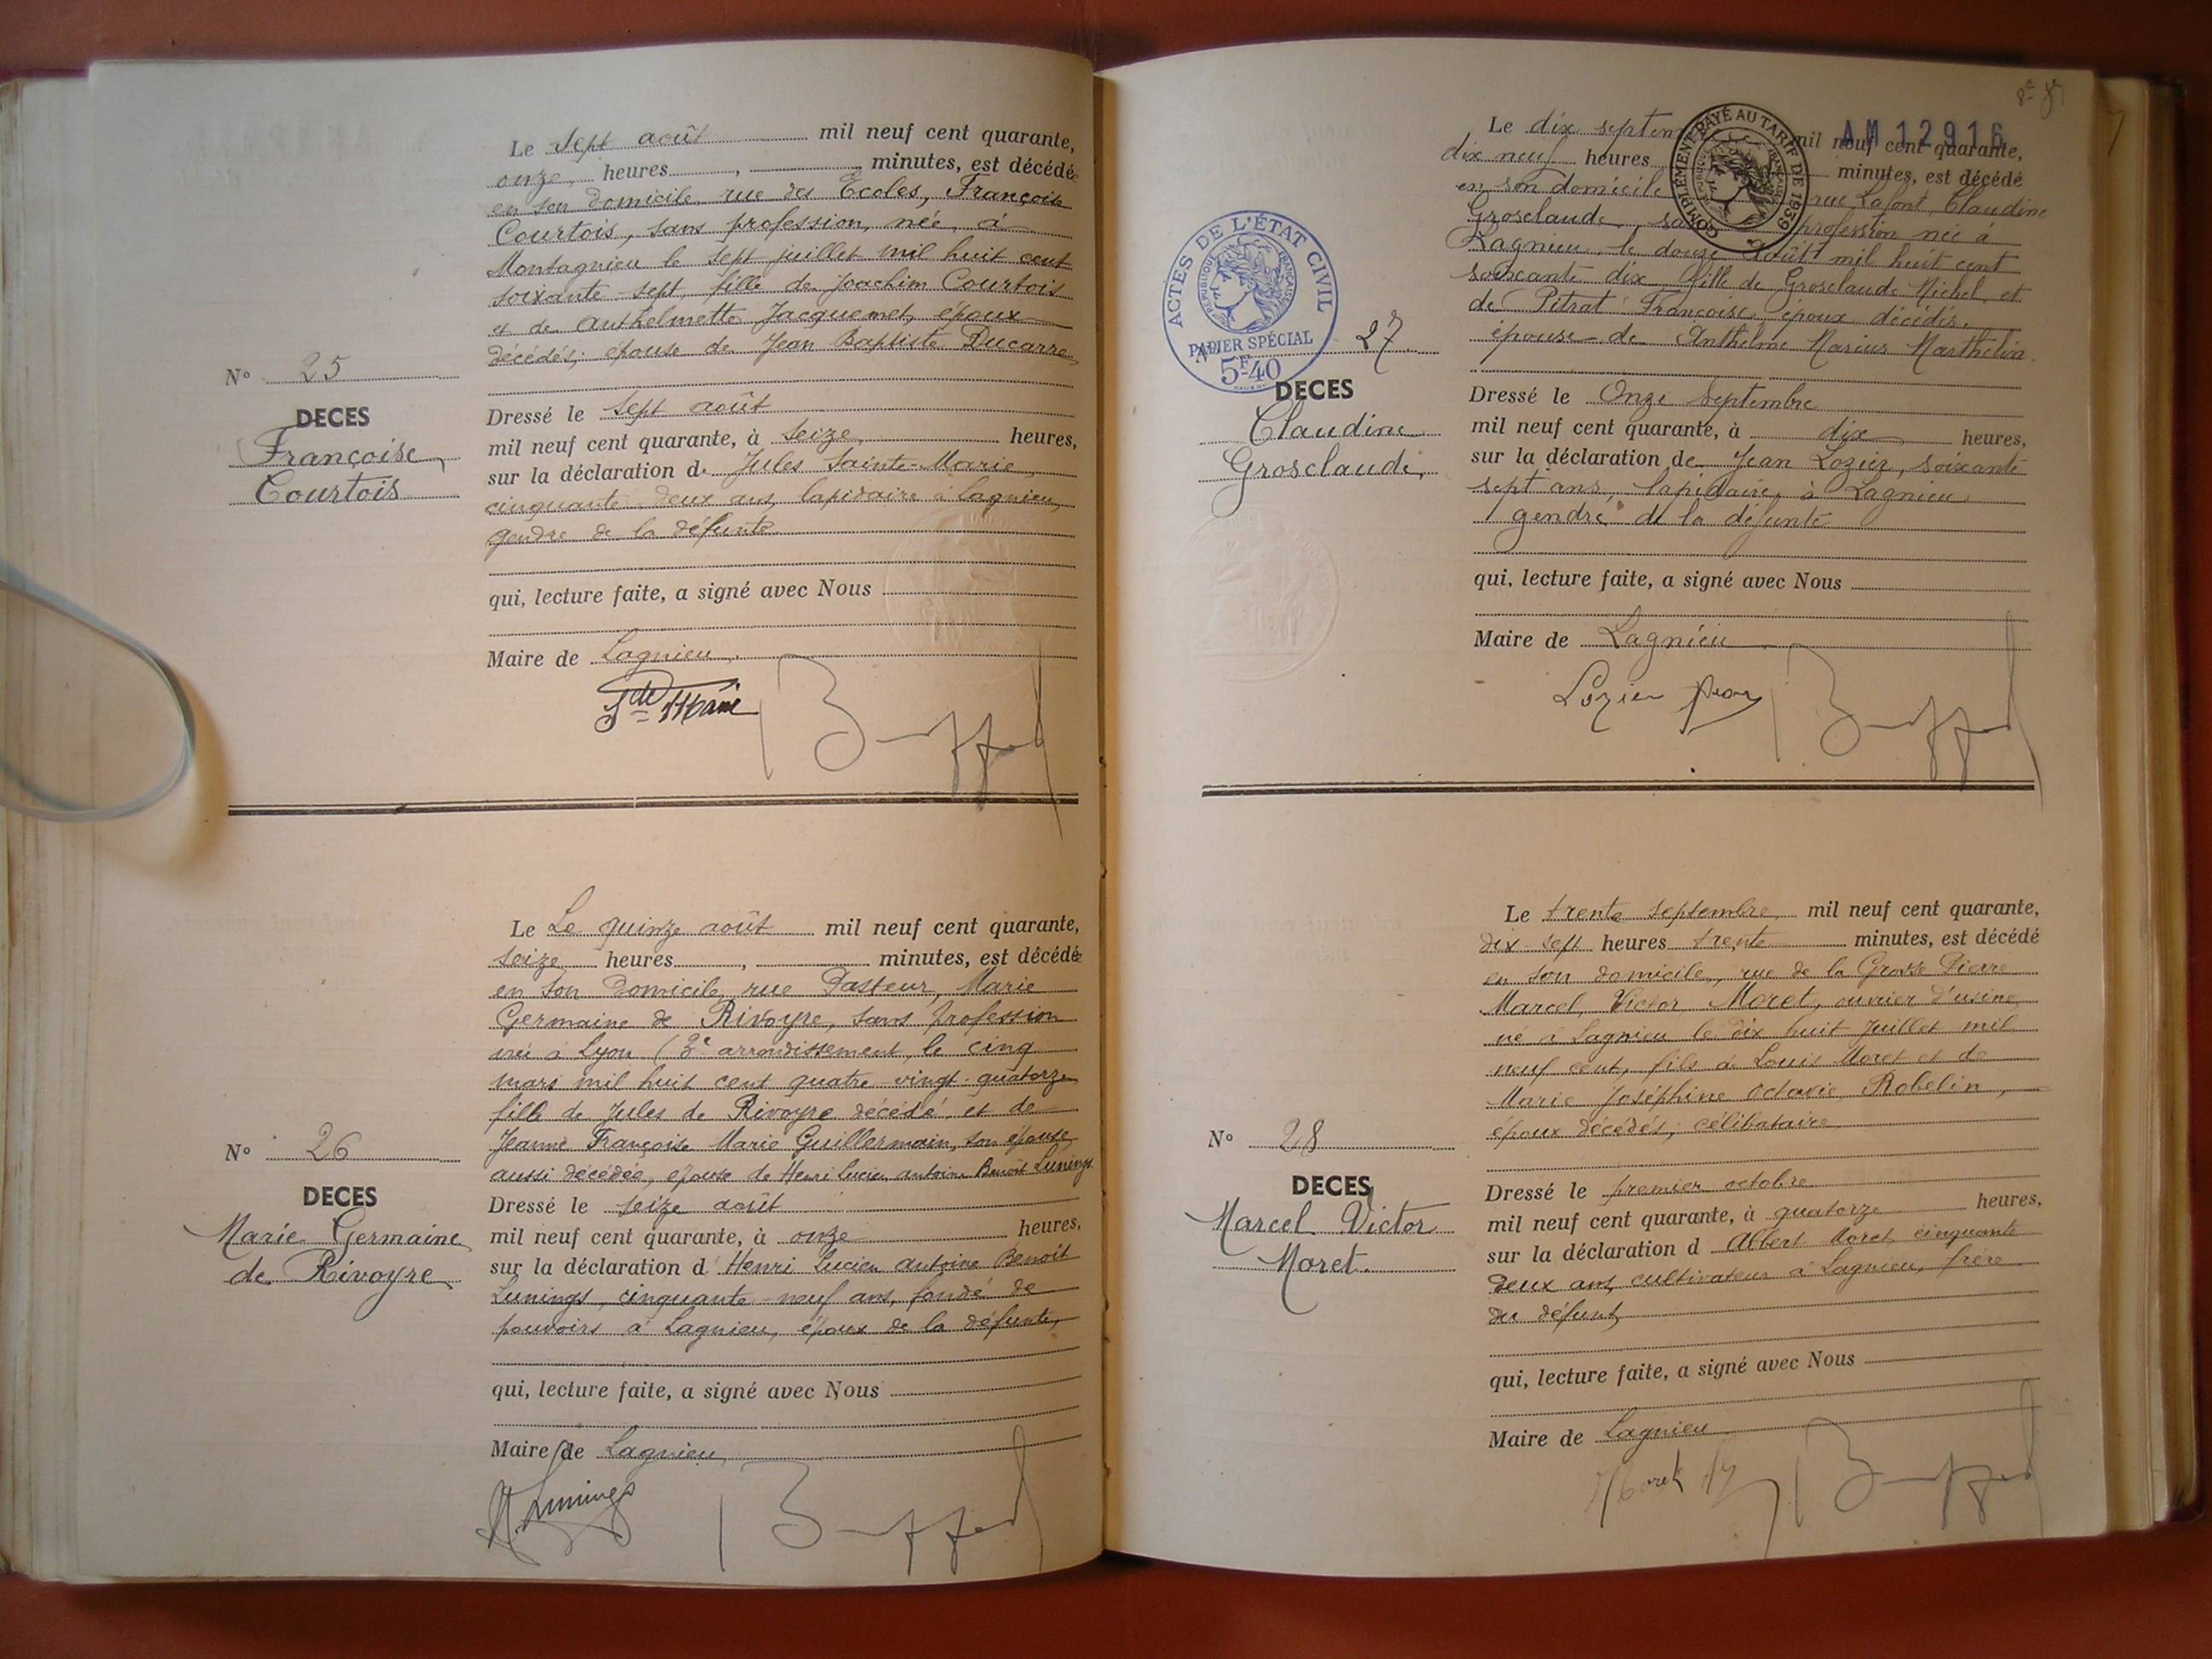 Le sept août mil neuf cent quarante,
onze heures, minutes, est décédée
en son domicile, rue des Ecoles, Françoise
Courtois, sans profession, née à
Montagnieu le sept juillet mil huit cent
soixante-sept, fille de Joachim Courtois
et de Anthelmette Jacquemet, époux
décédés; épouse de Jean Baptiste Ducarre
N° 25
DECES
Françoise
Courtois
Dressé le sept août
mil neuf cent quarante, à seize heures,
sur la déclaration de Jules Sainte-Marie,
cinquante deux ans, lapidaire à Lagnieu,
gendre de la défunte
qui, lecture faite, a signé avec Nous
Maire de Lagnieu
Ste Marie
Le Le quinze août mil neuf cent quarante,
seize heures, minutes, est décédée
en son domicile, rue Pasteur, Marie
Germaine de Rivoyre, sans profession
née à Lyon (2e arrondissement, le cinq
mars mil huit cent quatre vingt-quatorze
fille de Jules de Rivoyre décédé et de
Jeanne Françoise Marie Guillermain, son épouse
aussi décédée, épouse de Henri Lucien Antoine Benoît Lunings
N° 26
DECES
Marie Germaine
de Rivoyre
Dressé le seize août
mil neuf cent quarante, à onze heures,
sur la déclaration d' Henri Lucien Antoine Benoît
Lunings, cinquante-neuf ans, fondé de
pouvoirs à Lagnieu, époux de la défunte,
qui, lecture faite, a signé avec Nous
Maire de Lagnieu
H. Lunings
AM 12916
Le dix septem mil neuf cent quarante,
dix neuf heures minutes, est décédé
en son domicile rue Lafont, Claudine
Grosclaude, sa profession née à
Lagnieu, le douze Août mil huit cent
soixante dix, fille de Grosclaude Michel, et
de Pitrat Françoise, époux décédés,
épouse de Anthelme Marius Marthelin
COMPLÉMENT PAYÉ AU TARIF DE 1939
ACTES DE L'ÉTAT CIVIL
RÉPUBLIQUE FRANÇAISE
PAPIER SPÉCIAL
5F40
27
DECES
Claudine
Grosclaude,
Dressé le Onze Septembre
mil neuf cent quarante, à dix heures,
sur la déclaration de Jean Lozier, soixante
sept ans, lapidaire, à Lagnieu
gendre de la défunte
qui, lecture faite, a signé avec Nous
Maire de Lagnieu
Lozier Jean
Le trente septembre mil neuf cent quarante,
dix-sept heures trente minutes, est décédé
en son domicile, rue de la Grosse Pierre
Marcel, Victor Moret, ouvrier d'usine,
né à Lagnieu le dix huit juillet mil
neuf cent, fils de Louis Moret et de
Marie Joséphine Octavie Robelin,
époux décédés, célibataire
N° 28
DECES
Marcel Victor
Moret.
Dressé le premier octobre
mil neuf cent quarante, à quatorze heures,
sur la déclaration d Albert Moret, cinquante
deux ans, cultivateur à Lagnieu, frère
du défunt,
qui, lecture faite, a signé avec Nous
Maire de Lagnieu
Moret